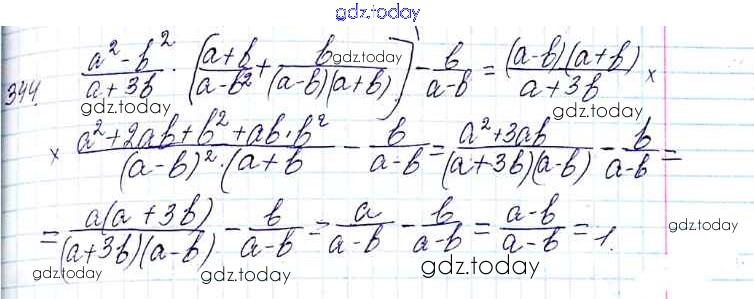 gdz.today
344. \frac{a^2-b^2}{a+3b} \cdot \left[\frac{a+b}{(a-b)^2}+\frac{b}{(a-b)(a+b)}\right]-\frac{b}{a-b}=\frac{(a-b)(a+b)}{a+3b} ×
gdz.today
gdz.today
gdz.today
× \frac{a^2+2ab+b^2+ab \cdot b^2}{(a-b)^2 \cdot (a+b}-\frac{b}{a-b}=\frac{a^2+3ab}{(a+3b)(a-b)}-\frac{b}{a-b}=
=\frac{a(a+3b)}{(a+3b)(a-b)}-\frac{b}{a-b}=\frac{a}{a-b}-\frac{b}{a-b}=\frac{a-b}{a-b}=1.
gdz.today
gdz.today
gdz.today
gdz.today